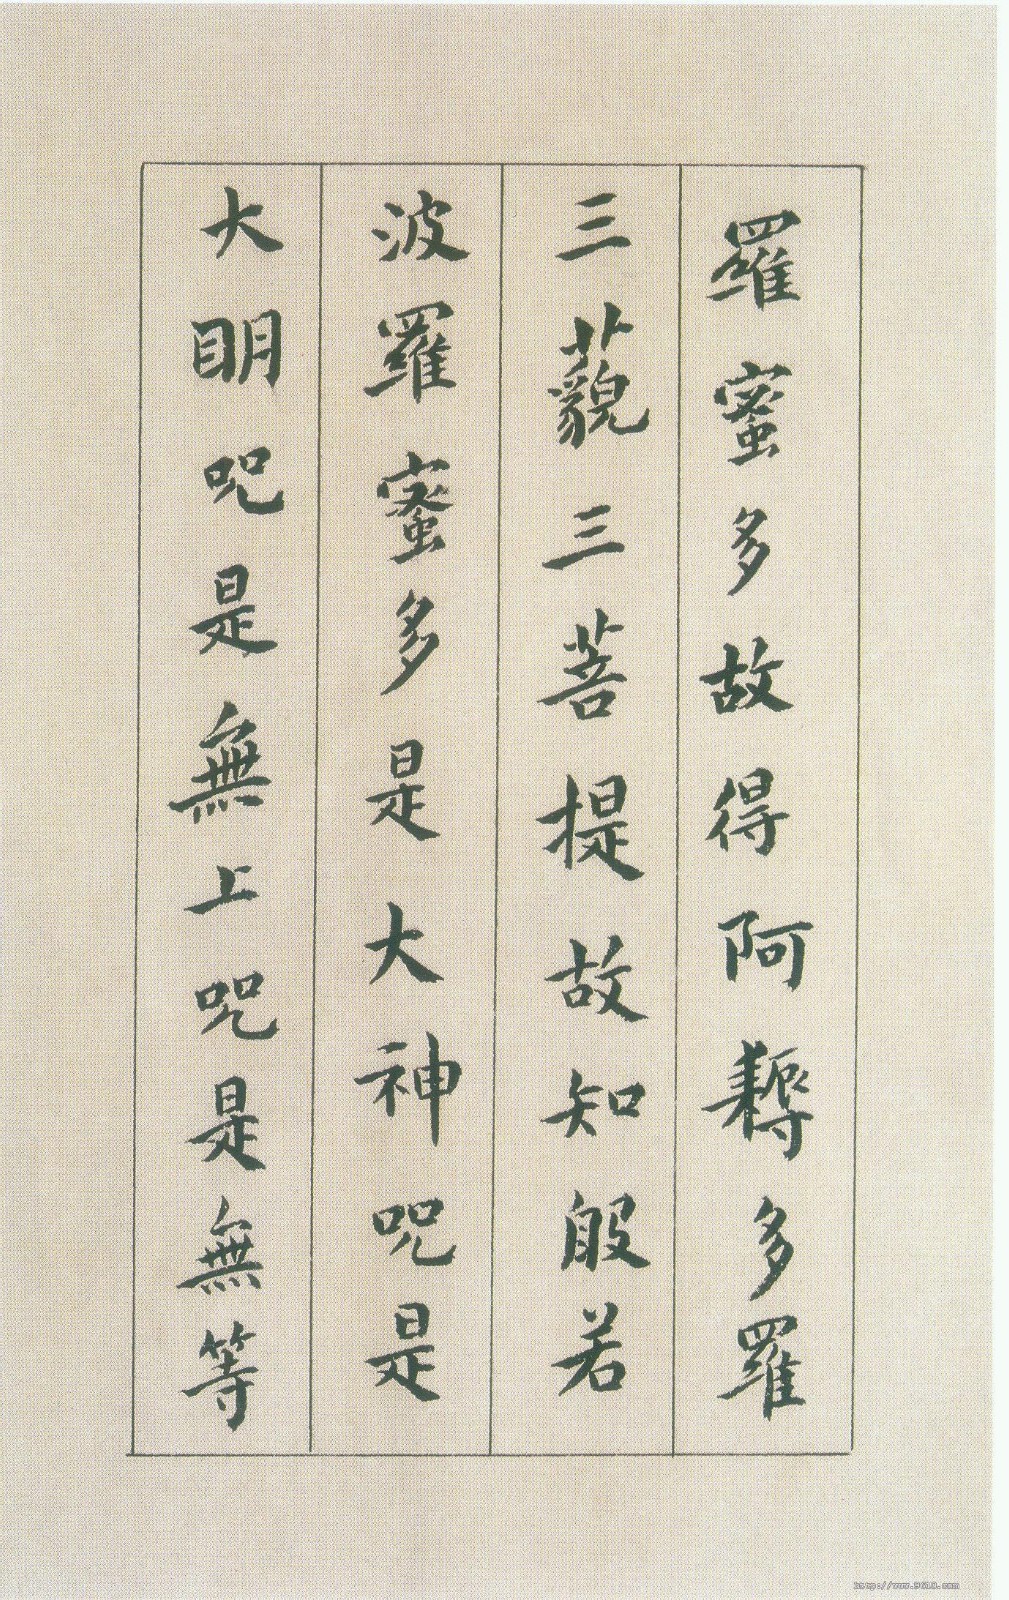 羅蜜多故得阿耨多羅
三藐三菩提故知般若
波羅蜜多是大神咒是
大明咒是無上咒是無等
http://www.9610.com